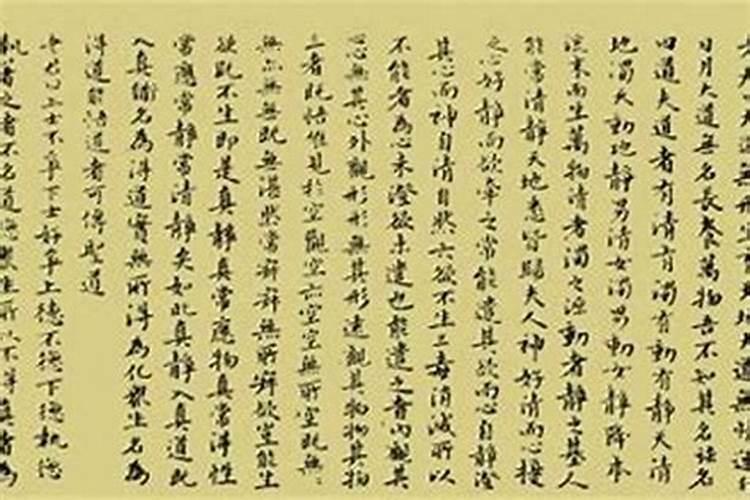 大道無形生育天地大道無情運行
日月大道無名長養萬物吾不知其名強名
曰道夫道者有清有濁有動有靜天清
地濁天動地靜男清女濁男動女靜降本
流末而生萬物清者濁之源動者靜之基人
能常清靜天地悉皆歸夫人神好清而心擾
之心好靜而欲牽之常能遣其欲而心自靜澄
其心而神自清自然六欲不生三毒消滅所以
不能者為心未澄欲未遣也能遣之者內觀其
心無其心外觀形形無其形遠觀其物物其物
三者既悟唯見於空觀空亦空空無所空既無
無亦無無既無湛然常寂寂無所寂欲豈能生
欲既不生即是真靜真常應物真常得性
常應常靜常清靜矣如此真靜入真道既
入真道名為得道實無所得為化眾生名為
得道能悟道者可傳聖道
老君曰上士不爭下士好爭上德不德下德執德
執著之者不名道德眾生所以不得真者為